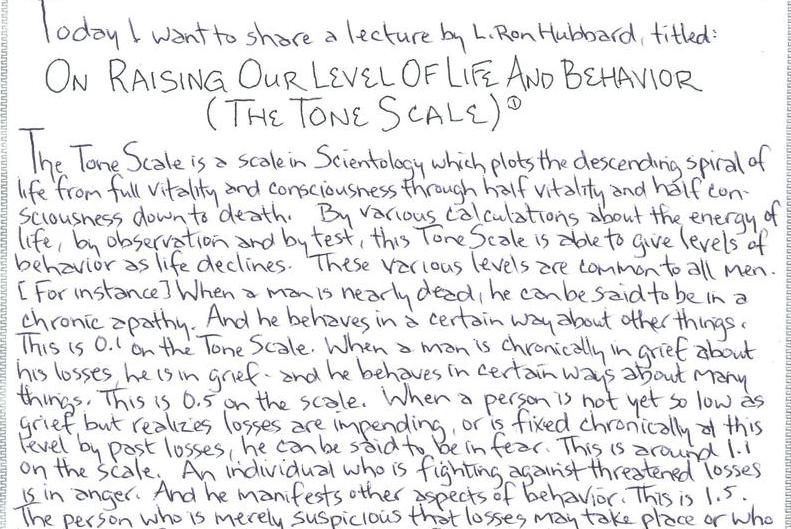 Today I want to share a lecture by L. Ron Hubbard, titled:
ON RAISING OUR LEVEL OF LIFE AND BEHAVIOR
(THE TONE SCALE)①
The Tone Scale is a scale in Scientology which plots the descending spiral of
life from full vitality and consciousness through half vitality and half con-
sciousness down to death. By various calculations about the energy of
life, by observation and by test, this Tone Scale is able to give levels of
behavior as life declines. These various levels are common to all men.
[For instance] When a man is nearly dead, he can be said to be in a
chronic apathy. And he behaves in a certain way about other things.
This is 0.1 on the Tone Scale. When a man is chronically in grief about
his losses, he is in grief - and he behaves in certain ways about many
things. This is 0.5 on the scale. When a person is not yet so low as
grief but realizes losses are impending, or is fixed chronically at this
level by past losses, he can be said to be in fear. This is around 1.1
on the scale. An individual who is fighting against threatened losses
is in anger. And he manifests other aspects of behavior. This is 1.5.
The person who is merely suspicious that losses may take place or who